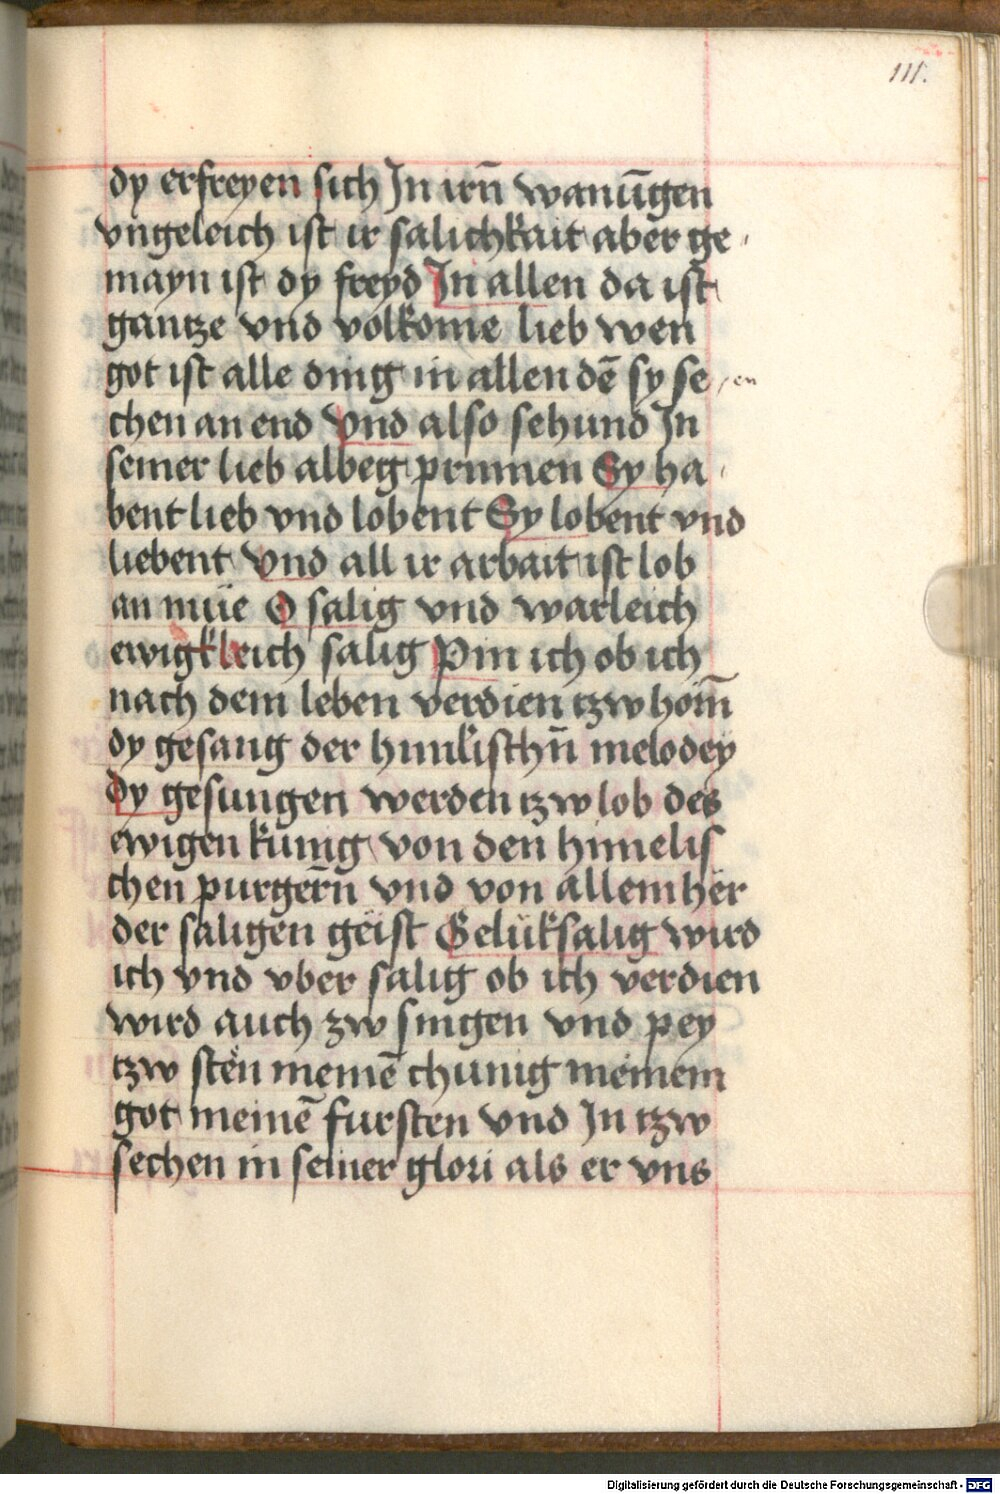 111.
dy erfreyen sich Jn irn̄ wanūgen
vngeleich ist ir salichkait aber ge
mayn ist dy freyd Jn allen da ist
gantze vnd volkome lieb wen
got ist alle ding in allen dē sy se en
chen an end Vnd also sehund Jn
seiner lieb albeg prinnen Sy ha
bent lieb vnd lobent Sy lobent vnd
liebent Vnd all ir arbait ist lob
an müe O salig vnd warleich
ewigkleich salig Pin ich ob ich
nach dem leben verdien tzw hörn̄
dy gesang der himlischn̄ melodey
dy gesungen werden tzw lob des
ewigen kunig von den himelis
chen purgern̄ vnd von allem her
der saligen geist Gelüksalig wird
ich vnd vber salig ob ich verdien
wird auch zw singen vnd pey
tzw sten meinē chunig meinem
got meinē fursten vnd Jn tzw
sechen in seiner glori als er vns
Digitalisierung gefördert durch die Deutsche Forschungsgemeinschaft - DFG